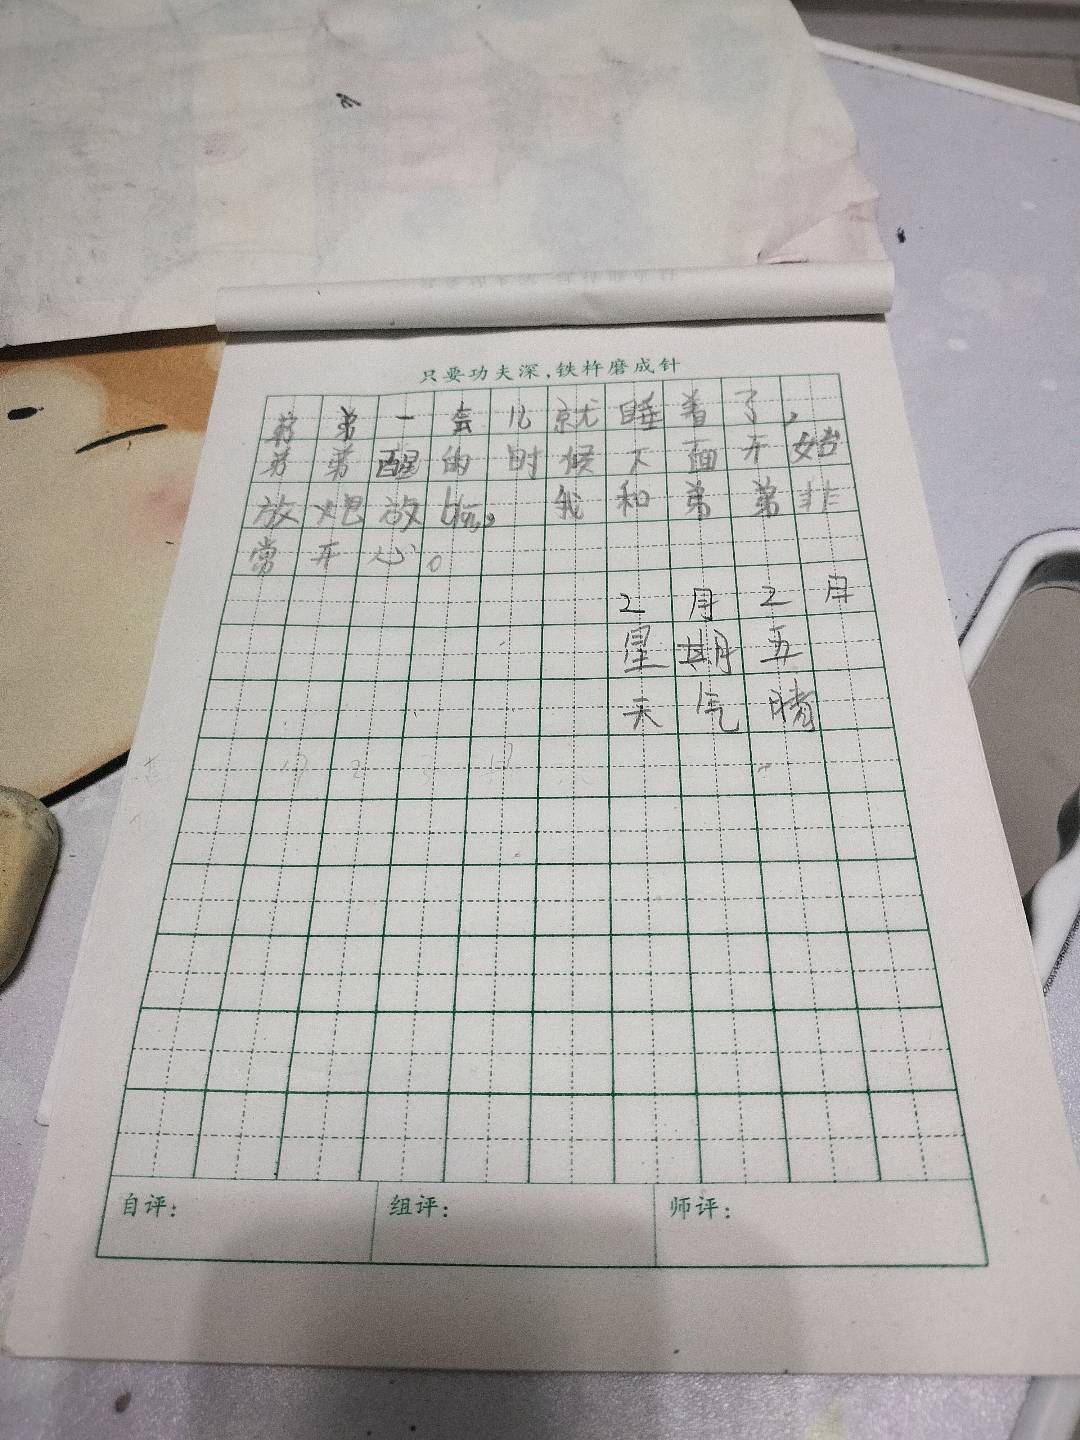 只要功夫深,铁杵磨成针
弟弟一会儿就睡着了,
弟弟醒的时候下面开始
放炮放 我和弟弟非
常开心。
2月2日
星期五
天气晴
自评: 组评: 师评: